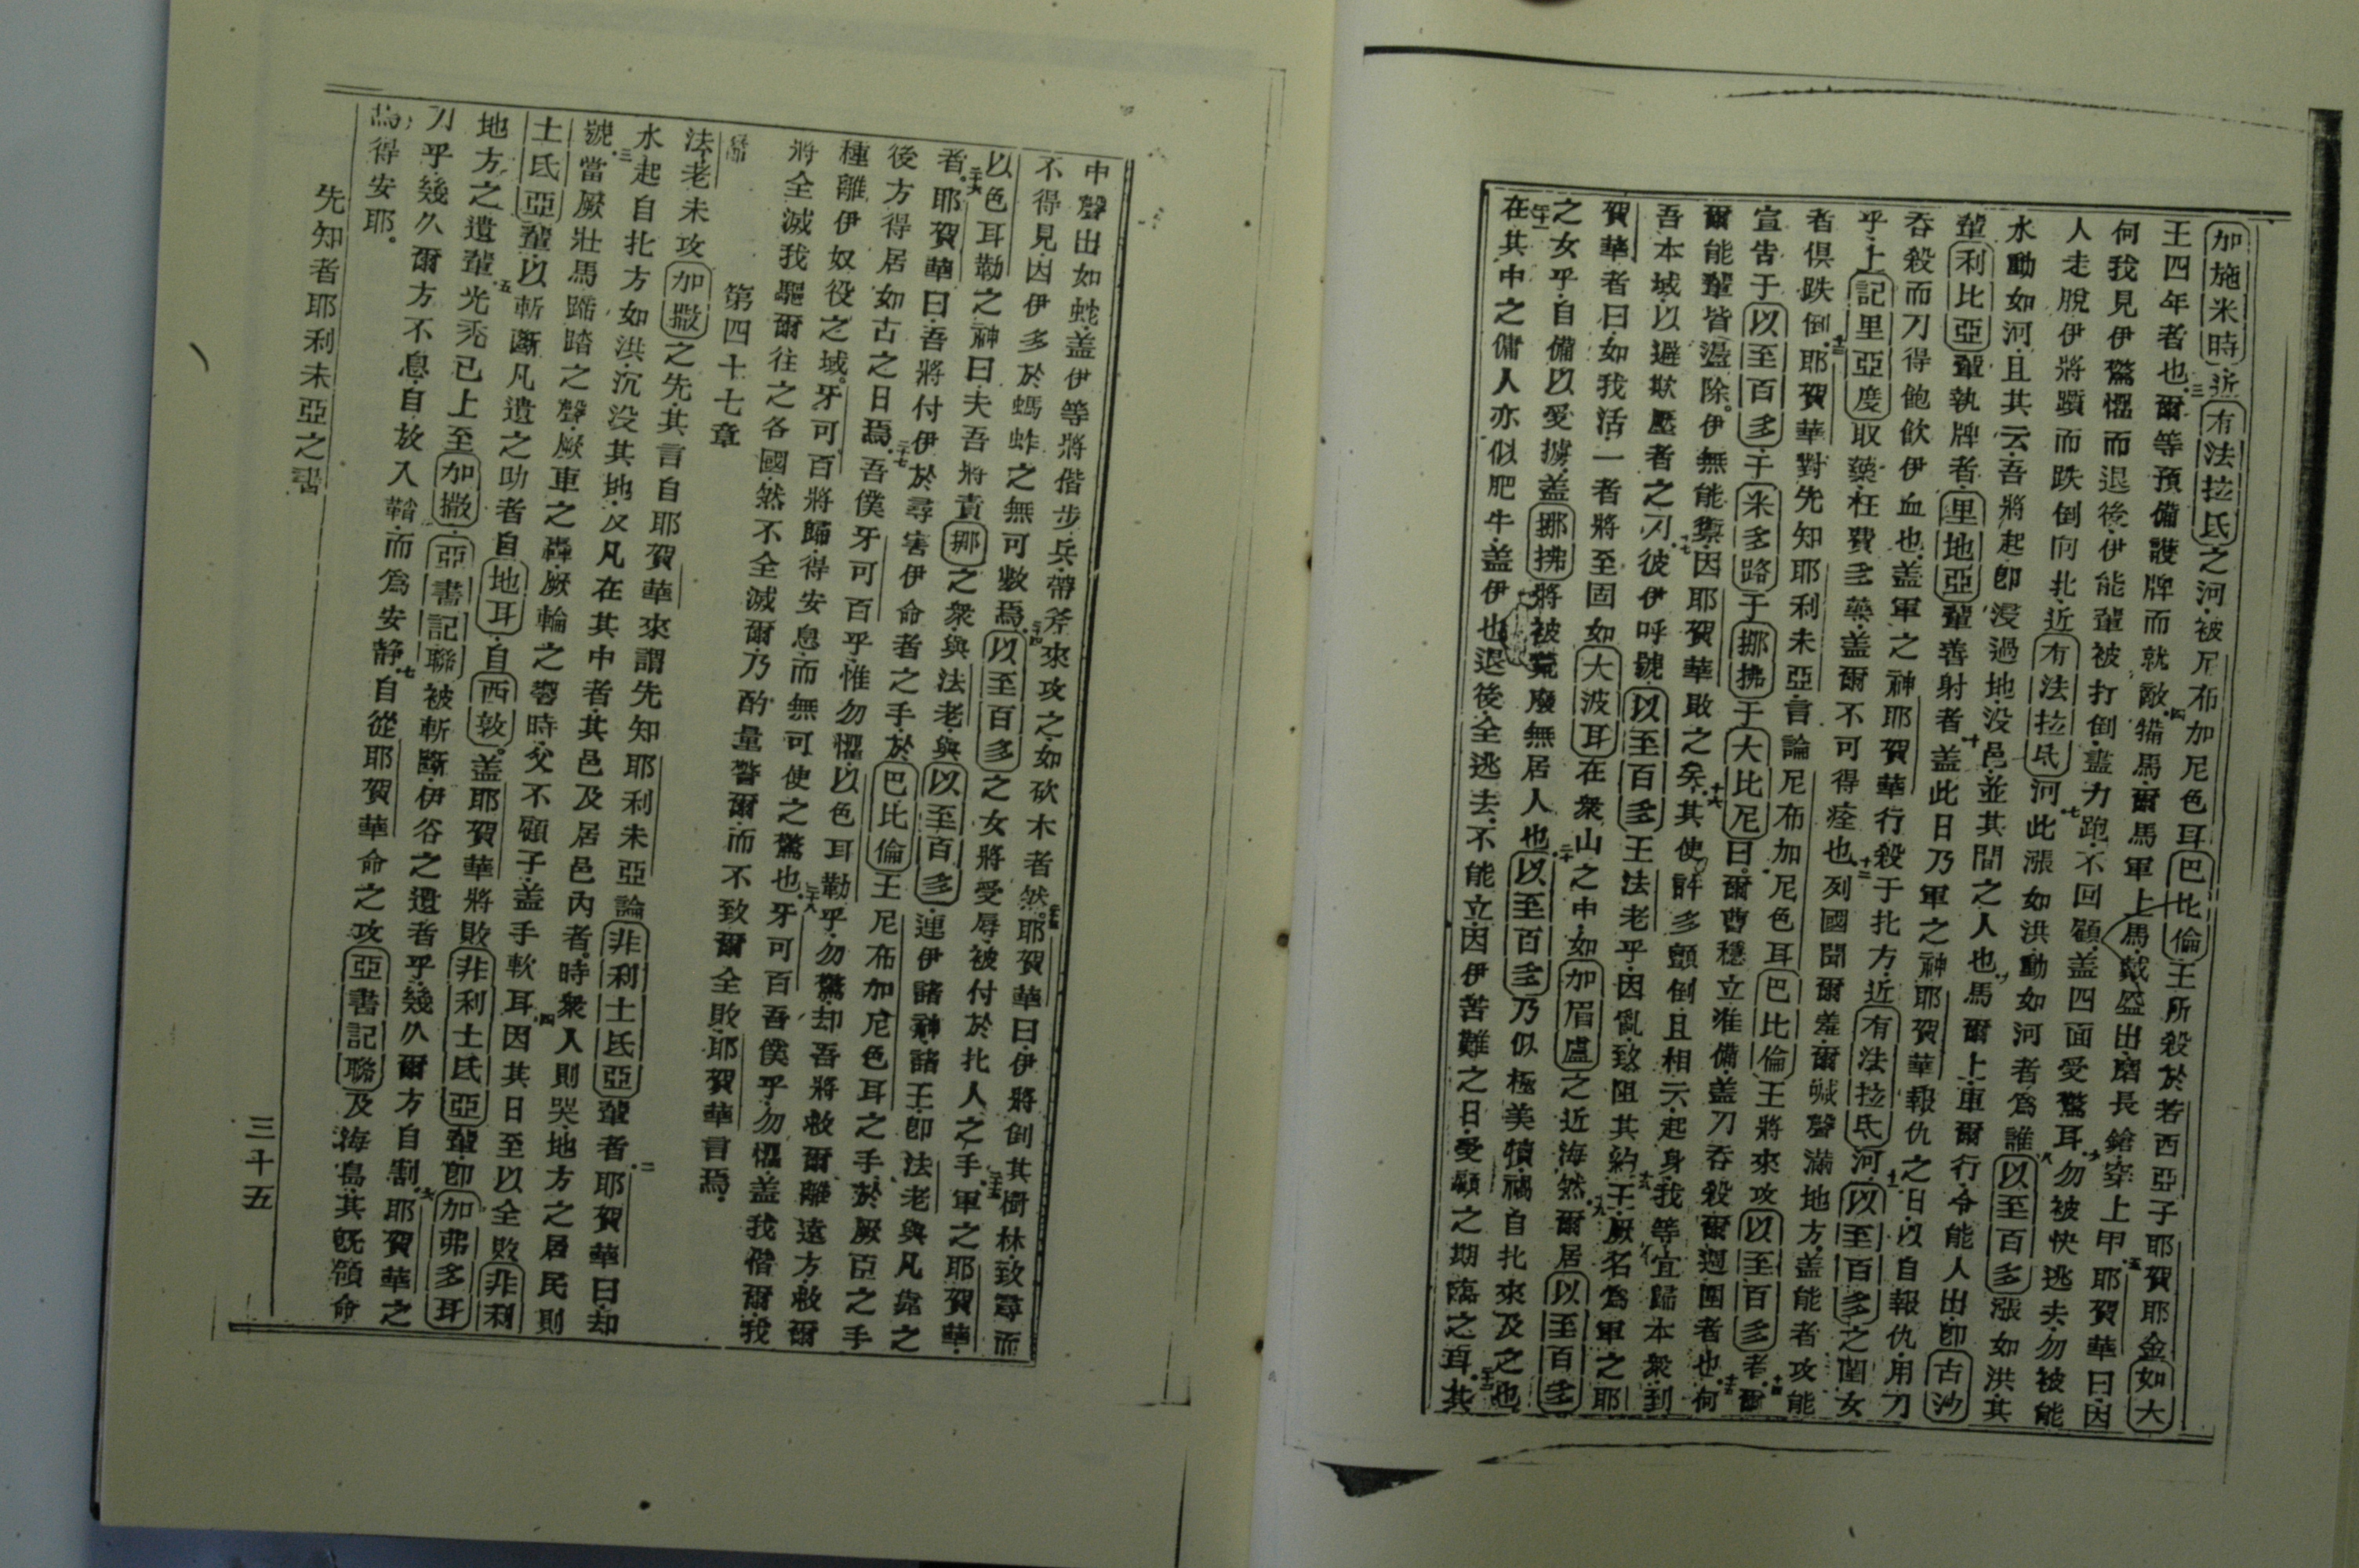 加施米時近有法拉氐之河被尼布加尼色耳巴比倫王所殺於若西亞子耶賀耶金如大
王四年者也三爾等預備護牌而就敵四備馬爾馬軍上馬戴盔出磨長鎗穿上甲五耶賀華曰因
何我見伊驚懼而退後伊能輩被打倒盡力跑不回顧蓋四面受驚耳六勿被快逃去勿被能
人走脫伊將躓而跌倒向北近有法拉氐河七此漲如洪動如河者為誰八以至百多漲如洪其
水動如河且其云吾將起即浸過地沒邑並其間之人也九馬爾上車爾行令能人出即古沙
輩利比亞輩執牌者里地亞輩善射者十蓋此日乃軍之神耶賀華報仇之日以自報仇用刀
吞殺而刀得飽飲伊血也蓋軍之神耶賀華行殺于北方近有法拉氐河十一以至百多之閨女
乎上記里亞度取藥枉費多藥蓋爾不可得痊也十二列國聞爾羞爾喊聲滿地方蓋能者攻能
者俱跌倒十三耶賀華對先知耶利未亞言論尼布加尼色耳巴比倫王將來攻以至百多者十四爾
宣告于以至百多于米多路于挪拂于大比尼曰爾曹穩立准備蓋刀吞殺爾週圍者也十五何
爾能輩皆盪除伊無能禦因耶賀華敗之矣十六其使許多顛倒且相云起身我等宜歸本衆到
吾本域以避欺壓者之刀十七彼伊呼號以至百多王法老乎因亂致阻其約十八王厥名為軍之耶
賀華者曰如我活一者將至固如大波耳在衆山之中如加眉盧之近海然十九爾居以至百多
之女乎自備以愛擄蓋挪拂將被荒廢無居人也二十以至百多乃似極美犢禍自北來及之也
二十一在其中之傭人亦似肥牛蓋伊也退後全逃去不能立因伊苦難之日受顧之期臨之耳二十二其
中聲出如蛇蓋伊等將偕步兵帶斧來攻之如砍木者然二十三耶賀華曰伊將倒其樹林致尋而
不得見因伊多於螞蚱之無可數焉二十四以至百多之女將受辱被付於北人之手二十五軍之耶賀華
以色耳勒之神曰夫吾將責挪之衆與法老與以至百多連伊諸神諸王即法老與凡靠之
者二十六耶賀華曰吾將付伊於尋害伊命者之手於巴比倫王尼布加尼色耳之手於厥臣之手
後方得居如古之日焉二十七吾僕牙可百乎惟勿懼以色耳勒乎勿驚却吾將救爾離遠方救爾
種離伊奴役之域牙可百將歸得安息而無可使之驚也二十八牙可百吾僕乎勿懼蓋我偕爾我
將全滅我驅爾往之各國然不全滅爾乃酌量警爾而不致爾全敗耶賀華言焉
第四十七章
法老未攻加撒之先其言自耶賀華來謂先知耶利未亞論非利士氐亞輩者二耶賀華曰却
水起自北方如洪沉沒其地及凡在其中者其邑及居邑內者時衆人則哭地方之居民則
號三當厥壯馬蹄踏之聲厥車之轟厥輪之響時父不顧子蓋手軟耳四因其日至以全敗非利
士氐亞輩以斬斷凡遺之助者自地耳自西敦蓋耶賀華將敗非利士氐亞輩即加弗多耳
地方之遺輩五光禿已上至加撒亞書記聯被斬斷伊谷之遺者乎幾久爾方自割六耶賀華之
刀乎幾久爾方不息自放入鞘而為安靜七自從耶賀華命之攻亞書記聯及海島其既領命
焉得安耶
先知者耶利未亞之書
三十五